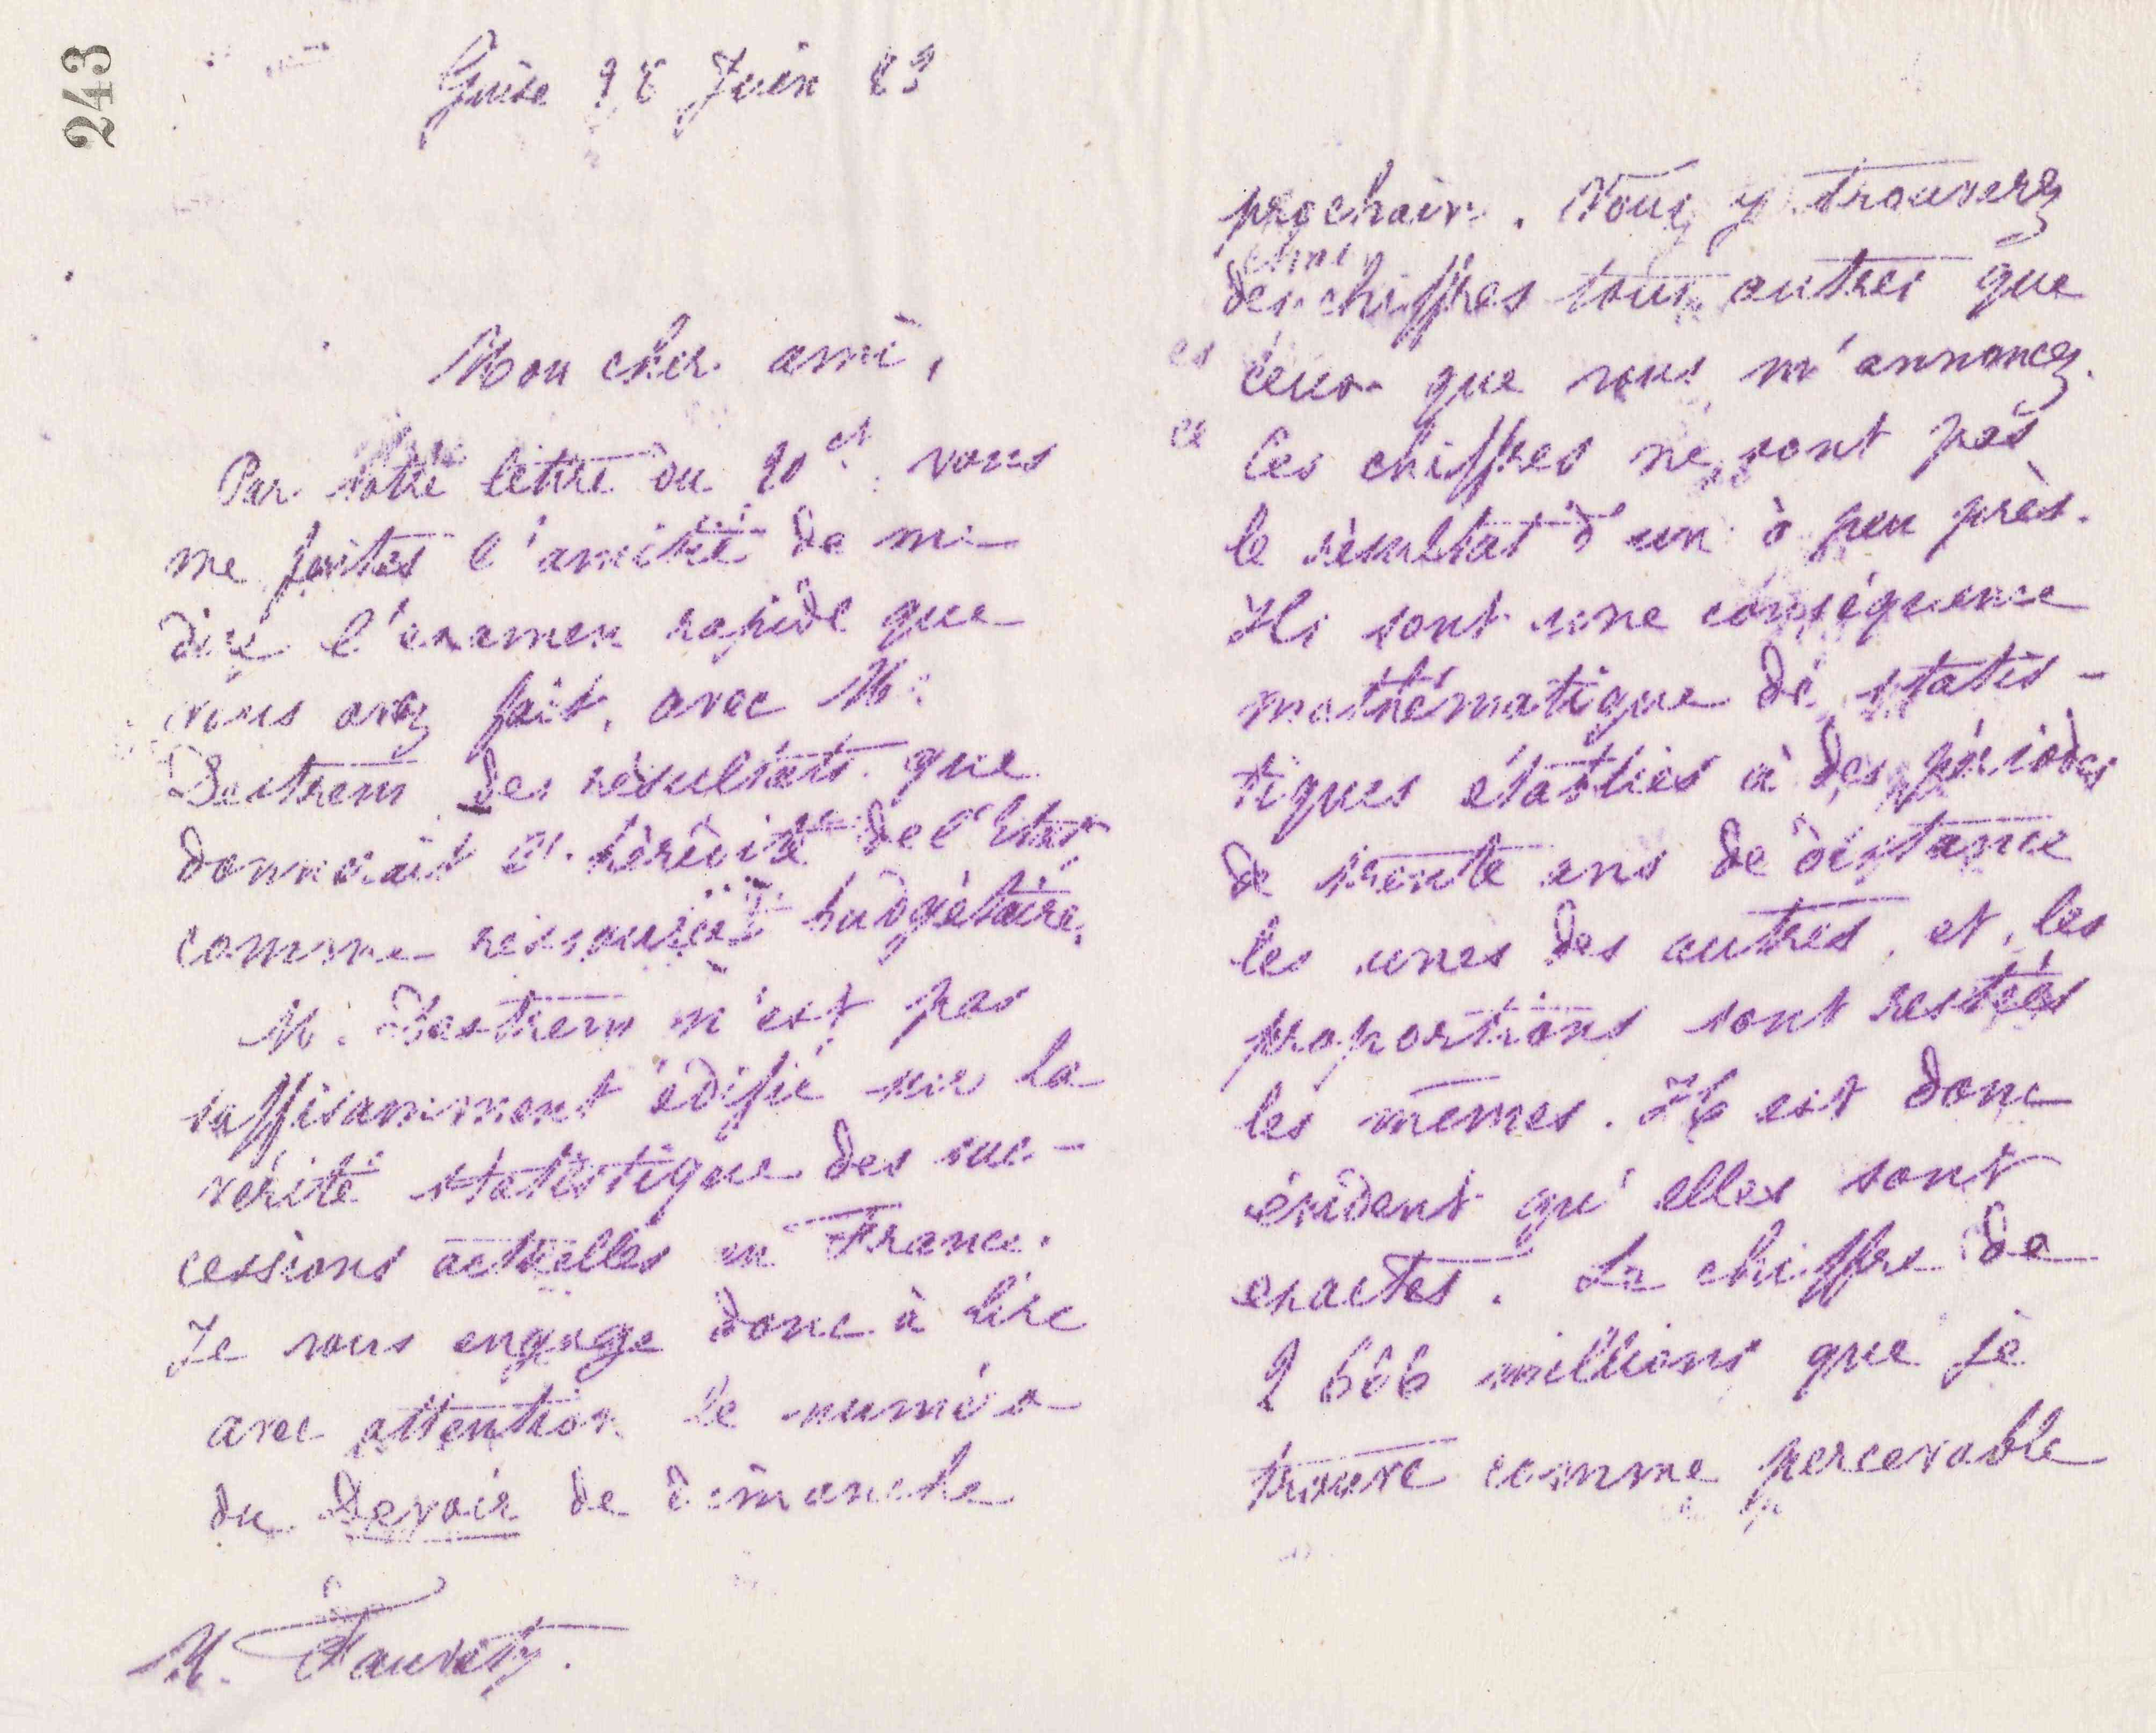 243
Guise 28 Juin 83
Mon cher ami,
Par votre lettre du 20 ct. vous
me faites l'amitié de me
dire l'examen rapide que
vous avez fait, avec M.
Destrem des résultats que
donnerait l'hérédité de l'Etat
comme ressource budgétaire.
M. Destrem n'est pas
suffisamment édifié sur la
vérité statistique des suc-
cessions actuelles en France.
Je vous engage donc à lire
avec attention le numéro
du Devoir de dimanche
M. Fauvety.
prochain. Vous y trouverez
des chiffres tous autres que
ceux que vous m'annoncez.
Ces chiffres ne sont pas
le résultat d'un à peu près.
Ils sont une conséquence
mathématique de statis-
tiques établies à des périodes
de trente ans de distance
les unes des autres, et les
proportions sont restées
les mêmes. Il est donc
évident qu'elles sont
exactes. Le chiffre de
2 666 millions que je
trouve comme percevable